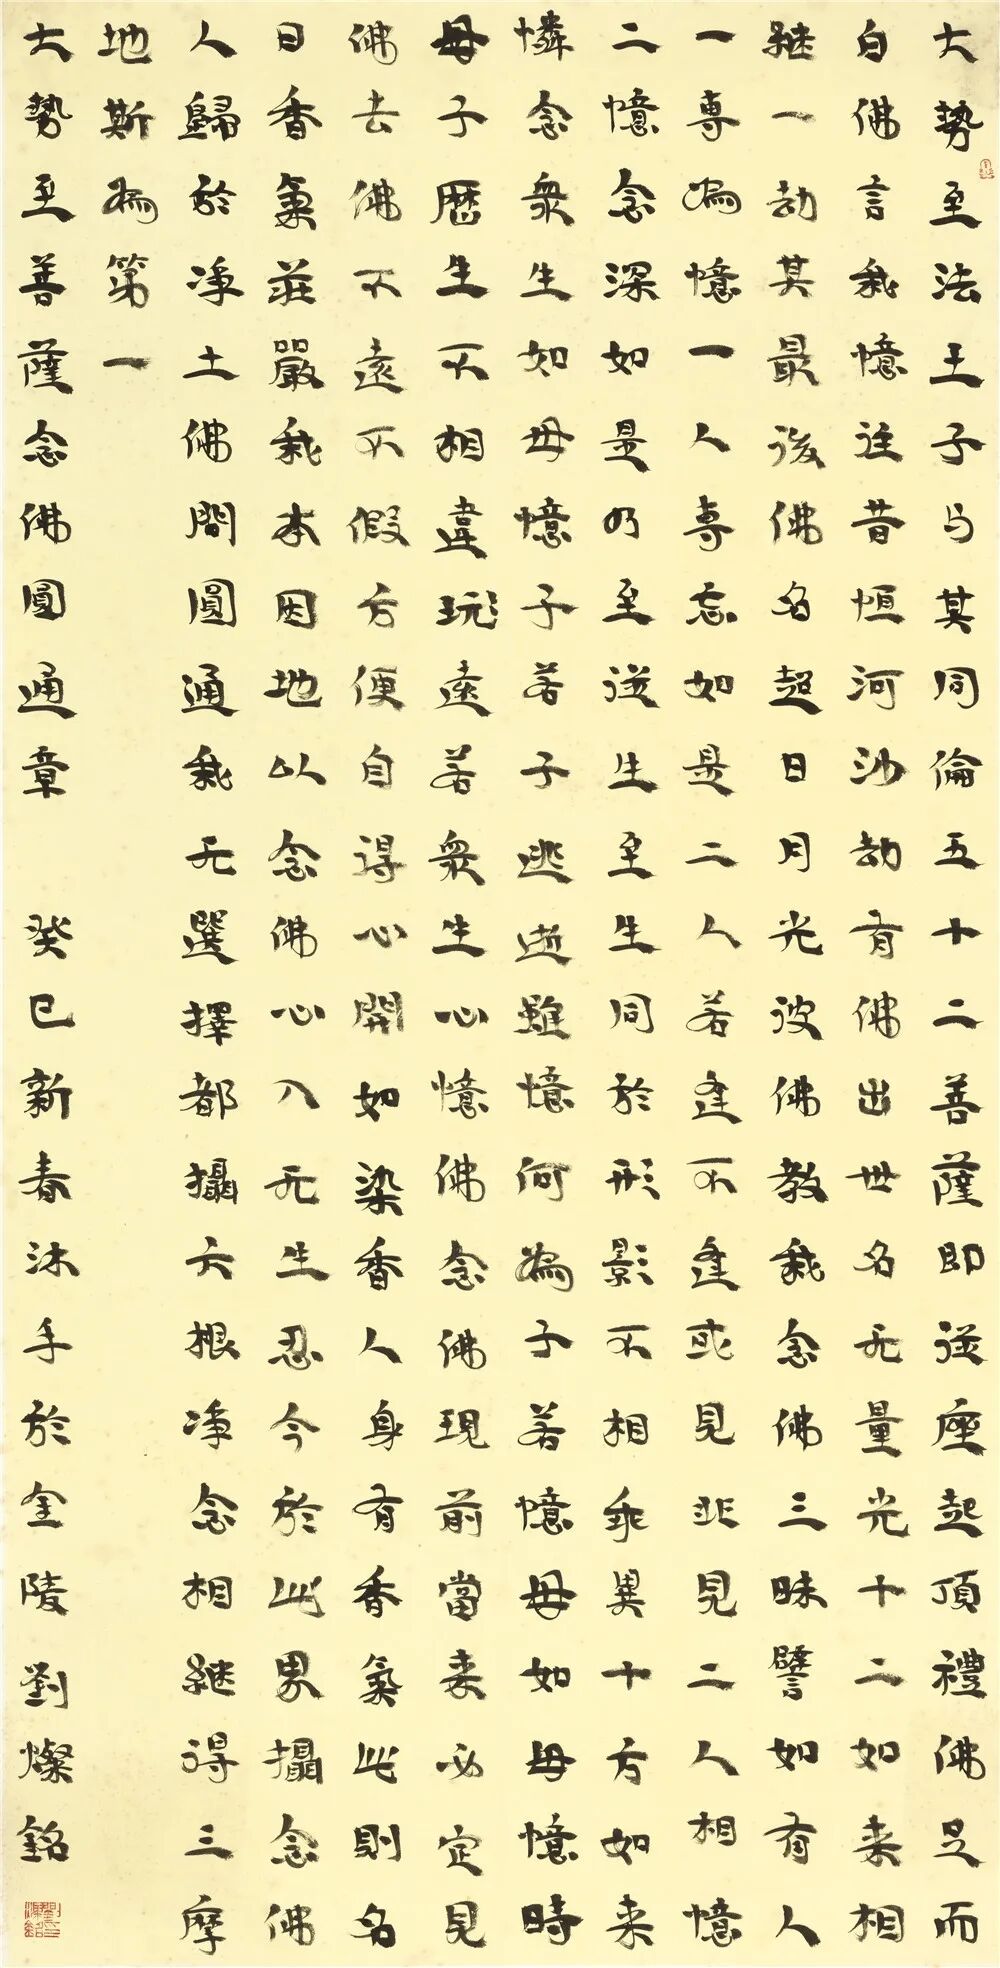 大勢至法王子与其同倫五十二菩薩即從座起頂禮佛足而
白佛言我憶往昔恒河沙劫有佛出世名无量光十二如来相
継一劫其最後佛名超日月光彼佛教我念佛三昧譬如有人
一專為憶一人專忘如是二人若逢不逢或見非見二人相憶
二憶念深如是乃至從生至生同於形影不相乖異十方如来
憐念衆生如母憶子若子逃逝雖憶何為子若憶母如母憶時
母子歷生不相違玩遠若衆生心憶佛念佛現前當来必定見
佛去佛不遠不假方便自得心開如染香人身有香氣此則名
日香氣莊嚴我本因地以念佛心入无生忍今於此界攝念佛
人歸於淨土佛問圓通我无選擇都攝六根淨念相継得三摩
地斯為第一
大勢至菩薩念佛圓通章 癸巳新春沐手於金陵劉燦銘